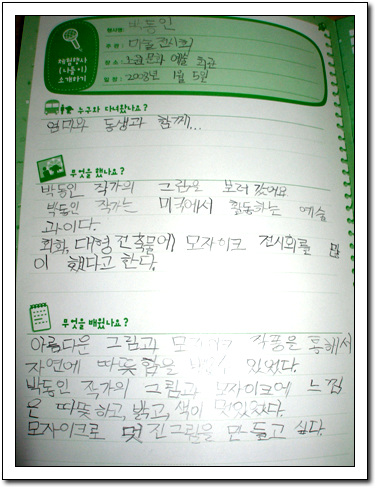 체험행사
(나들이)
소개하기
행사명: 박동인
주제: 미술 전시회
장소: 노원 문화 예술 회관
일정: 2008년 1월 5일
누구와 다녀왔나요?
엄마와 동생과 함께...
무엇을 했나요?
박동인 작가의 그림을 보러 갔어요
박동인 작가는 미국에서 활동하는 예술
과이다.
회화, 대형건축물에 모자이크 전시회를 많
이 했다고 한다.
무엇을 배웠나요?
아름다운 그림과 모자이크 작품은 통해서
자연에 따뜻함을 있었다.
박동인 작가의 그림과 모자이크에 느낌
은 따뜻하고, 밝고, 색이 멋있었다.
모자이크로 멋진그림을 만들고 싶다.